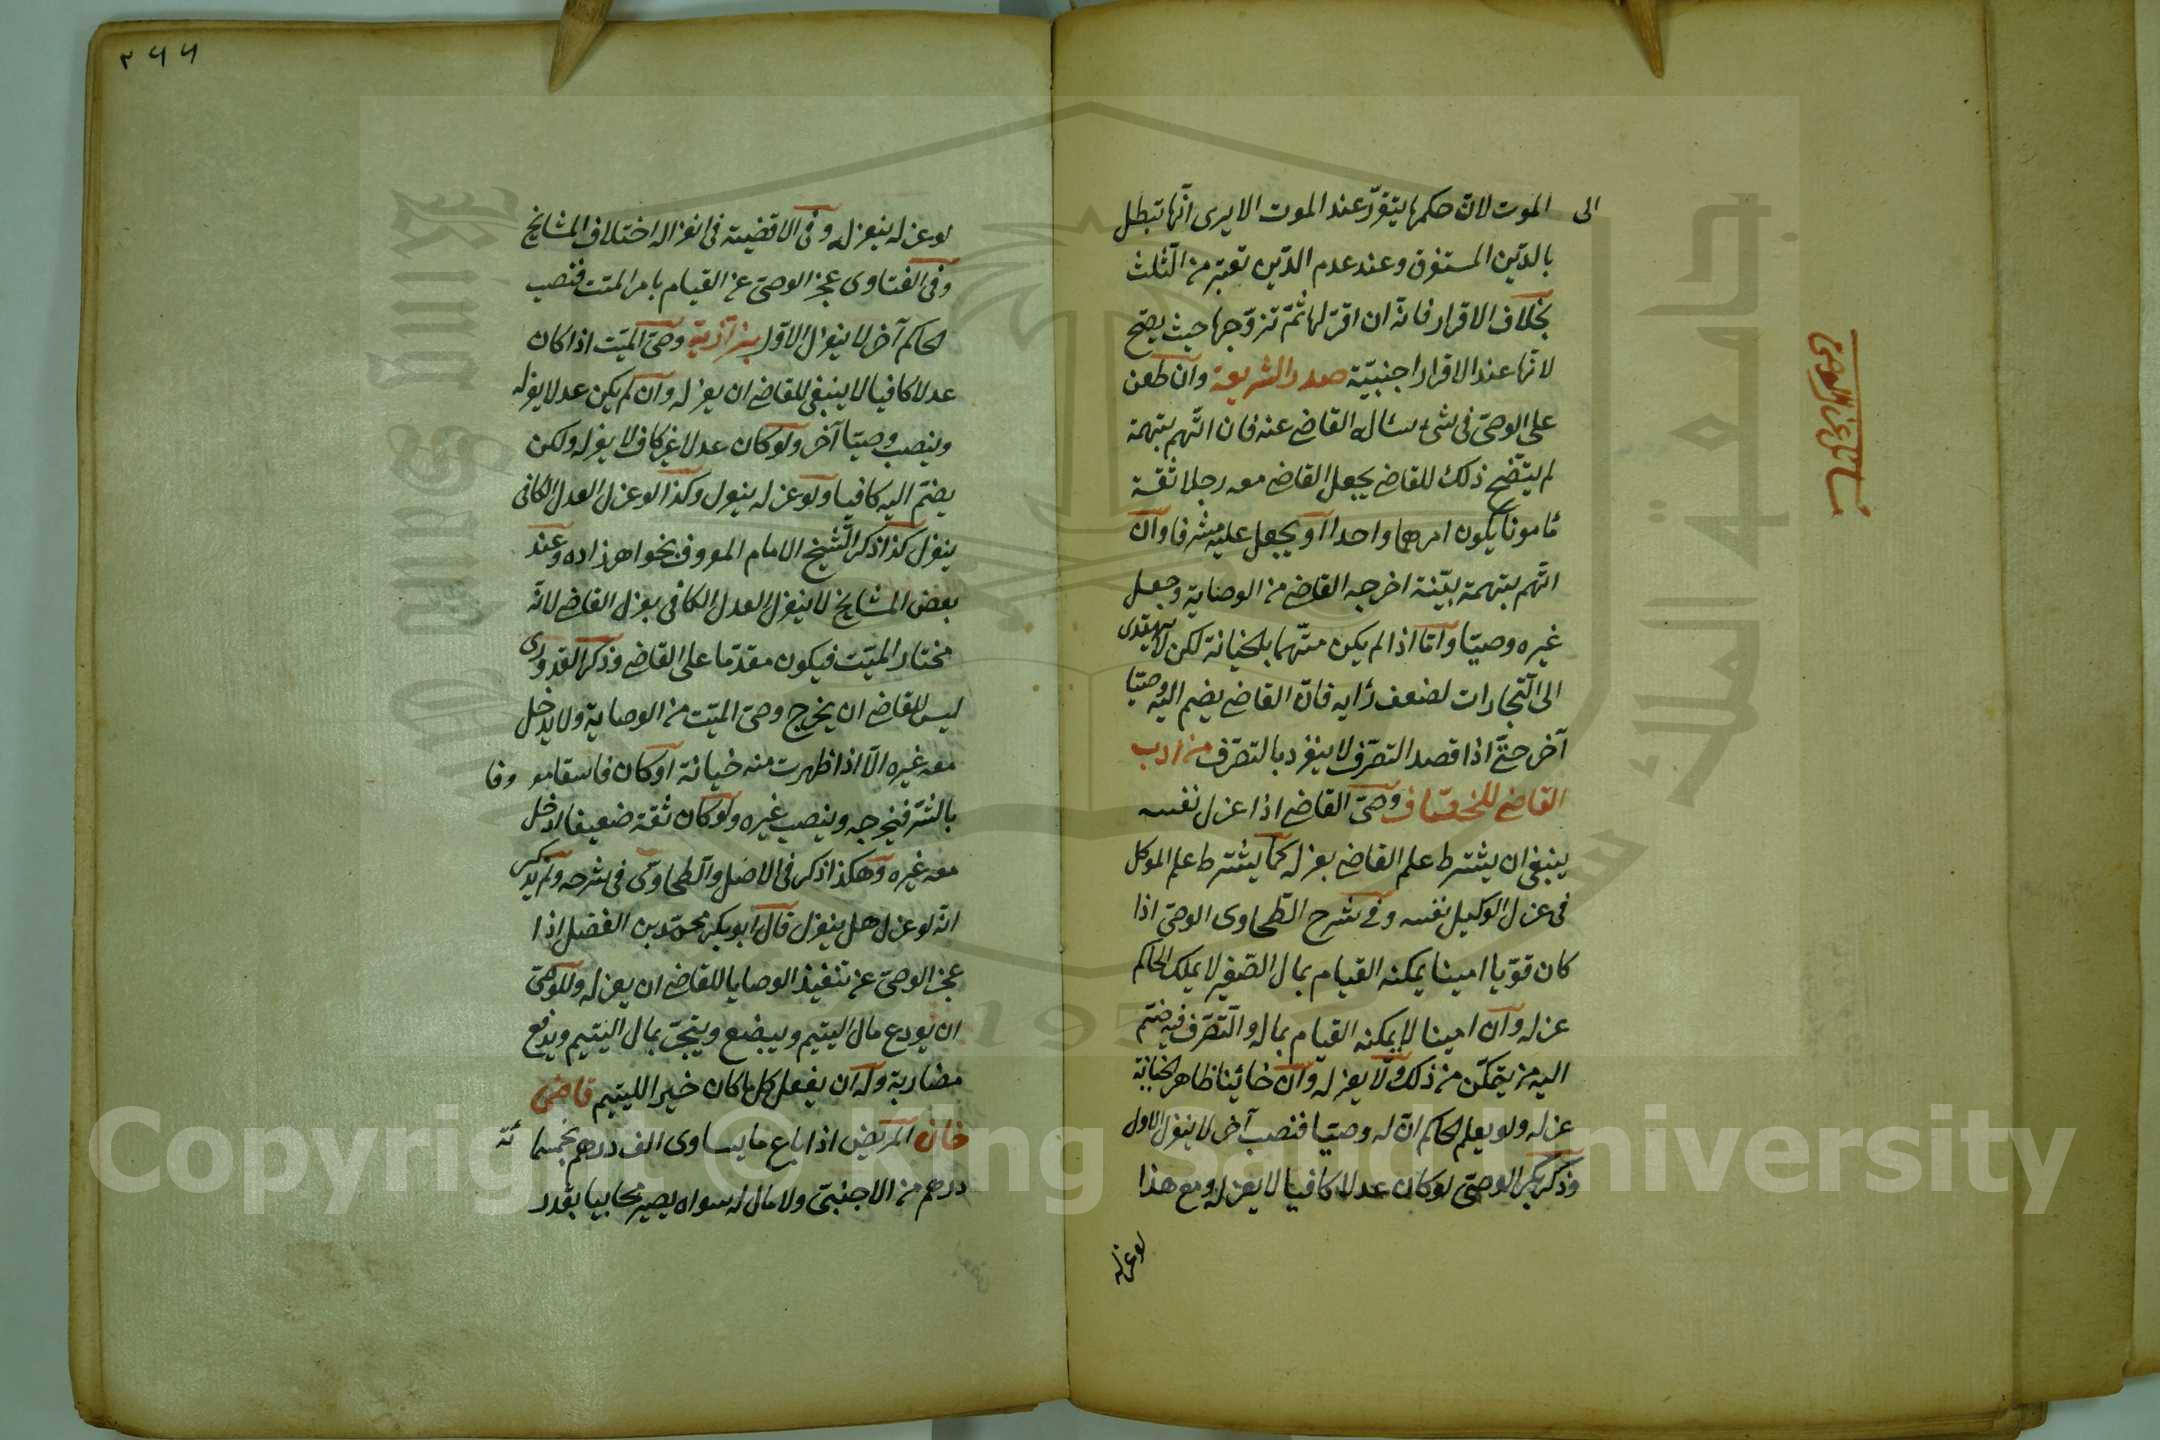 الى الموت لانّ حكمها يتقرّر عند الموت الا يرى انّها تبطل
بالدّين المستغرق وعند عدم الدّين تعتبر من الثّلث
بخلاف الاقرار فانّه ان اقرّ لها ثمّ تزوّجها حيث يصحّ
لانّها عند الاقرار اجنبيّة صدر الشريعة وان طعن
على الوصىّ فى شئ سئال القاضى عنه فان اتّهم بتهمة
لم يتّضح ذلك للقاضى يجعل القاضى معه رجلا ثقة
مأمونا يكون امرهما واحدا او يجعل عليه مشرفا وان
اتّهم بتهمة بيّنة اخرجه القاضى من الوصاية وجعل
غيره وصيّا وامّا اذا لم يكن متّهما بالخيانة لكن لا يهتدى
الى التّجارات لضعف رأيه فانّ القاضى يضم اليه وصيّا
آخر حتّى اذا قصد التصرّف لا ينفرد بالتصرّف من ادب
القاضى للخصّاف وصىّ القاضى اذا عزل نفسه
ينبغى ان يشترط علم القاضى بعزله كما يشترط علم الموكل
فى عزل الوكيل نفسه وفى شرح الطّحاوى الوصىّ اذا
كان قويّا امينا يمكنه القيام بمال الصّغير لا يملك الحاكم
عزله وان امينا لا يمكنه القيام بماله والتّصرّف فيه ضمّ
اليه من يتمكّن من ذلك ولا يعزله وان خائنا ظاهر الخيانة
عزله ولو يعلم الحاكم انّ له وصيّا فنصب آخر لا ينعزل الاول
وذكر بكر الوصىّ لو كان عدلا كافيا لا يعزله ومع هذا
لو عزله
٢٦٦
لو عزله ينعزل وفى الاقضية فى انعزاله اختلاف المشايخ
وفى الفتاوى عجز الوصىّ عن القيام بامر الميّت فنصب
الحاكم آخر لا ينعزل الاوّل بزّازيّة وصىّ الميّت اذا كان
عدلا كافيا لا ينبغى للقاضى ان يعزله وان لم يكن عدلا يعزله
وينصب وصيّا آخر ولو كان عدلا غير كاف لا يعزله ولكن
يضمّ اليه كافيا ولو عزله ينعزل وكذا لو عزل العدل الكافى
ينعزل كذا ذكر الشّيخ الامام المعروف بخواهرزاده وعند
بعض المشايخ لا ينعزل العدل الكافى بعزل القاضى لانّه
مختار الميّت فيكون مقدّما على القاضى وذكر القدورى
ليس للقاضى ان يخرج وصىّ الميّت من الوصاية ولا يدخل
معه غيره الّا اذا ظهرت منه خيانة او كان فاسقا معروفا
بالشّرّ فيخرجه وينصب غيره ولو كان ثقة ضعيفا ادخل
معه غيره وهكذا ذكر فى الاصل والطّحاوىّ فى شرحه ولم يذكر
انّه لو عزل هل ينعزل قال ابو بكر محمّد بن الفضل اذا
عجز الوصىّ عن تنفيذ الوصايا للقاضى ان يعزله وللوصىّ
ان يودع مال اليتيم ويبضع ويتّجر بمال اليتيم ويدفع
مضاربة وله ان يفعل كل ما كان خيرا لليتيم قاضى
خان المريض اذا باع ما يساوى الف درهم بخمسمائة
درهم من الاجنبىّ ولا مال له سواه يصير محابيا بقدر
جامعة الملك سعود
King Saud University
195
Copyright © King Saud University